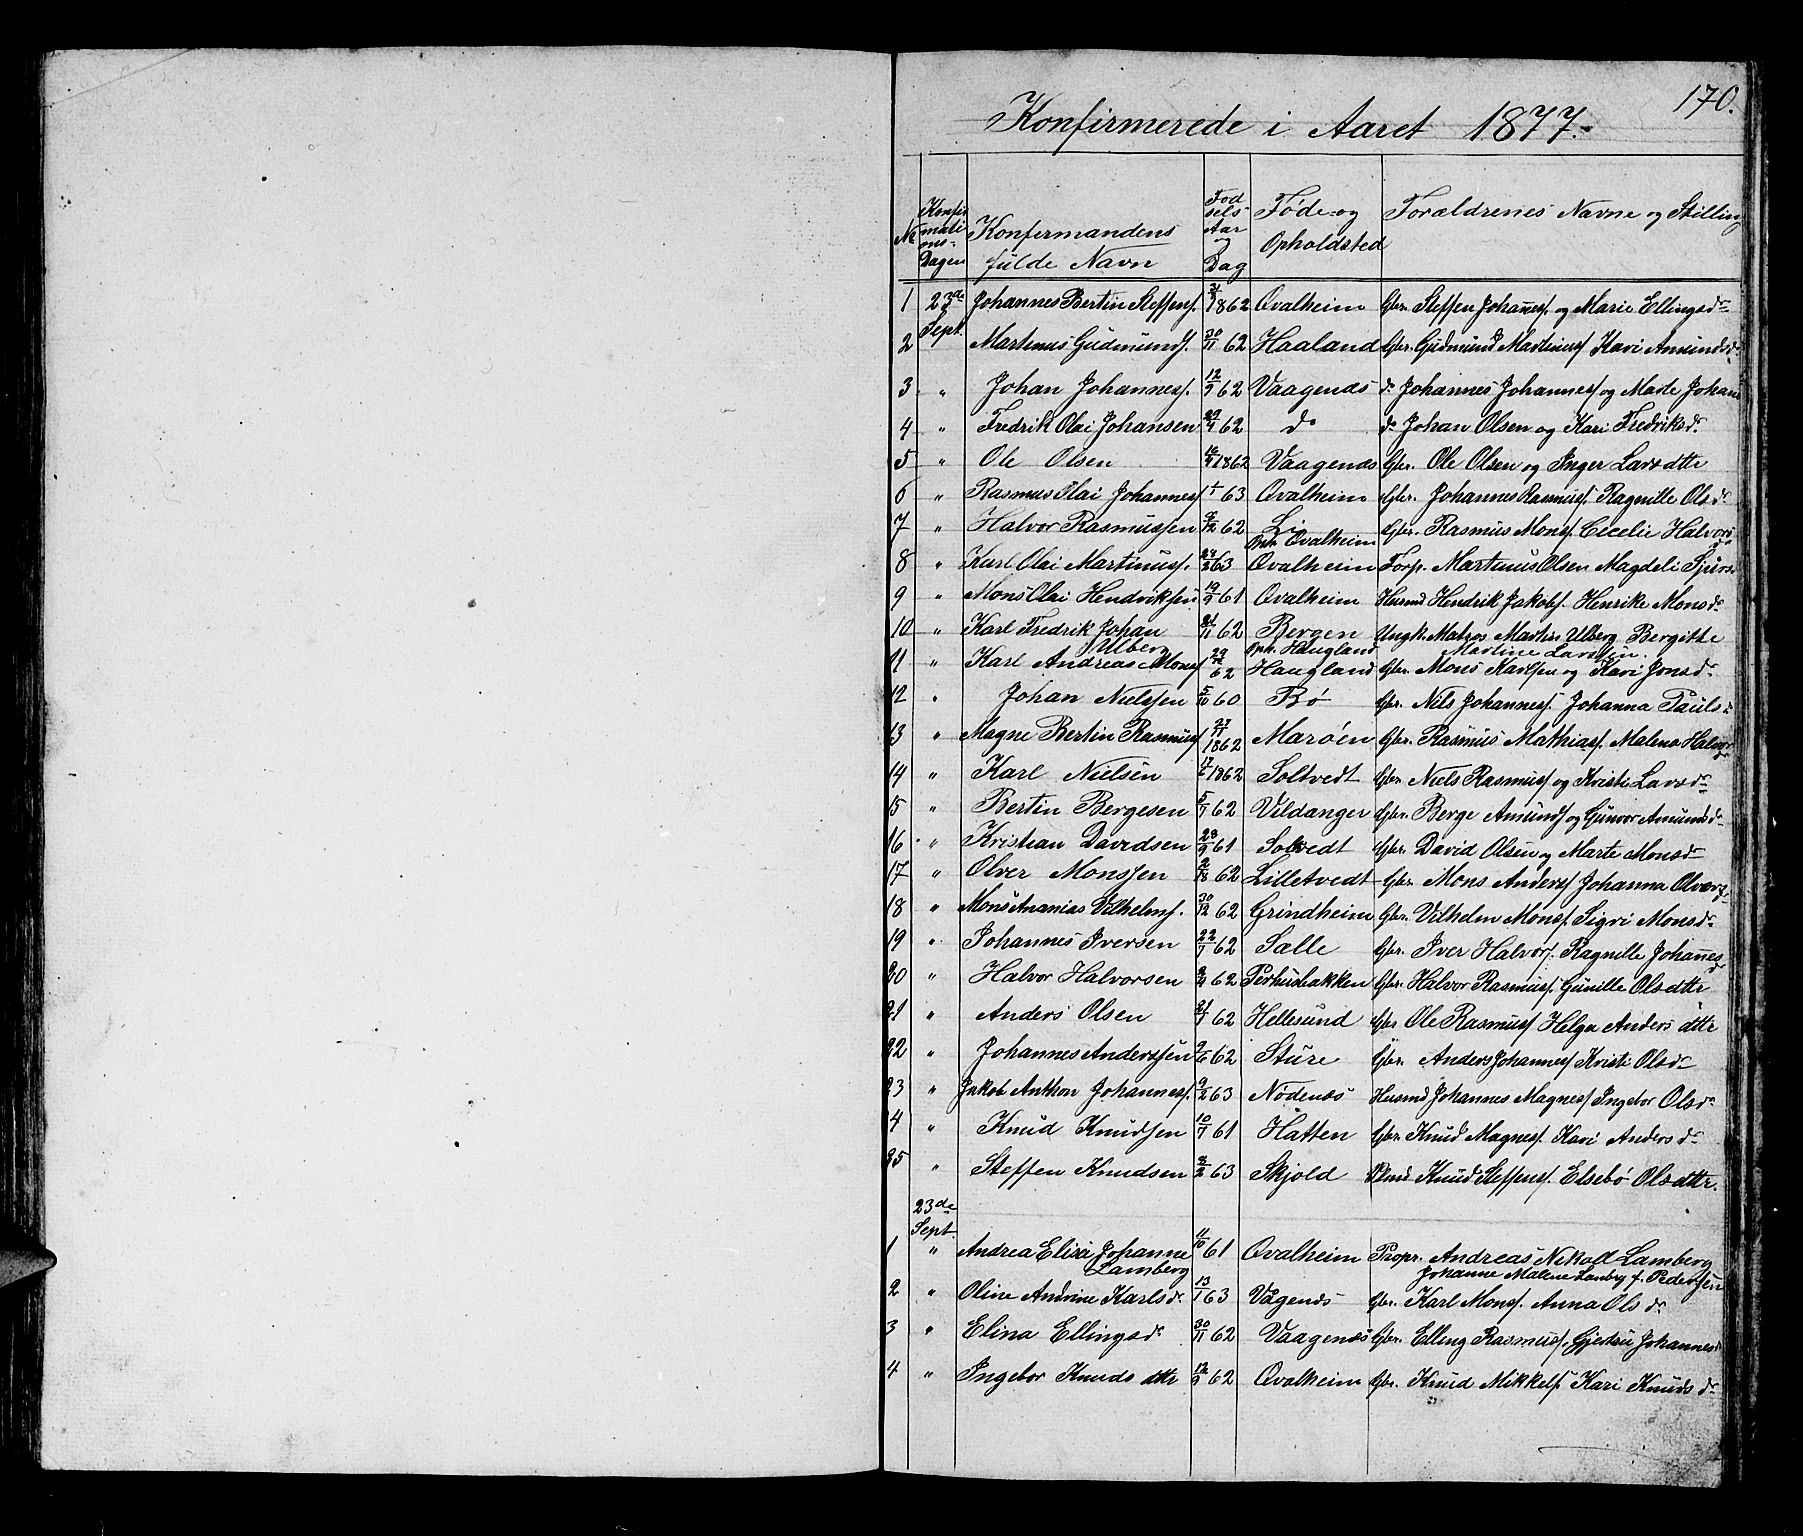 170.
Konfirmerede i Aaret 1877.
No Konfirmations-Dagen Konfirmandens fulde Navn Fødselsaar og Dag Føde og Opholdsted Forældrenes Navne og Stilling
1 23de Sept. Johannes Bertin Steffens. 1862 Ovalheim Gbr. Steffen Johannes. og Marie Ellingsdr
2 Martinus Gudmunds. 30/11 62 Haaland Gbr. Gudmund Martinus Kari Amundsd.
3 " Johan Johannes. 12/9 62 Vaagenæs do Johannes Johannes og Marte Johan
4 " Fredrik Olai Johansen 29/4 62 do do Johan Olsen og Kari Fredriksdr
5 " Ole Olsen 1862 Vaagenæs Gbr. Ole Olsen og Inger Larsdttr
6 " Rasmus Olai Johannes 1/1 63 Ovalheim Gbr. Johannes Rasmus. Ragnille Olsdr
7 " Halvor Rasmussen 62 Li Gbr. Rasmus Mons. Cecelie Halvors
Oph. Ovalheim
8 " Karl Olai Martinus. 63 Ovalheim Forp. Martinus Olsen Magdeli Sjurs
9 " Mons Olai Hendriksen 19/9 61 Ovalheim Husmd Hendrik Jakobs. Henrike Monsdr
10 " Karl Fredrik Johan 21/11 62 Bergen Ungk. Matros Martin Ulberg Bergitte
Ulberg Oph. Haugland Martine Larssen.
11 " Karl Andreas Mons 29/12 62 Haugland Gbr. Mons Karlsen og Kari Jonsdr
12 " Johan Nielssen 5/10 60 Bø Gbr. Nils Johannes. Johanna Pauls
13 " Magne Bertin Rasmus 27/11 1862 Marøen Gbr. Rasmus Mathias. Malena Halvor
14 " Karl Nielsen 17/6 1862 Soltvedt Gbr Niels Rasmus og Kristi Larsdr
15 " Bertin Bergesen 5/7 62 Vildanger Gbr. Berge Amunds og Gunvor Amundsdr
16 " Kristian Davidsen 28/9 61 Soltvedt Gbr. David Olsen og Marte Monsdr
17 " Olver Monssen 62 Lilletvedt Gbr Mons Anders Johanna Olvers
18 " Mons Ananias Vilhelms. 30/12 62 Grindheim Gbr. Vilhelm Mons. Sigri Monsdr
19 " Johannes Iversen 22/7 62 Sælle Gbr. Iver Halvor. Ragnille Johannes
20 " Halvor Halvorsen 62 Perhusbakken Gbr. Halvor Rasmus. Gunille Olsdttr
21 " Anders Olsen 21/7 62 Hellesund Gbr Ole Rasmus Helga Andersdttr
22 " Johannes Anderssen 9/6 62 Sture Gbr. Anders Johannes Kristi Olsdr
23 " Jakob Anthon Johannes. 9/2 63 Nødenæs Husmd Johannes Magnes Ingebor Olsdr
4 " Knud Knudsen 10/7 61 Hatten Gbr. Knud Magnes. Kari Andersdr
25 " Steffen Knudsen 63 Skjold Knud Steffens. Elsebø Olsdttr.
23de Sept.
1 " Andrea Elisa Johanne 11/10 61 Ovalheim Propr. Andreas Nikod Lamberg
Lamberg Johanne Malene Lamberg f. Pedersen
2 " Oline Andrine Karlsdr 13/1 63 Vågenæs Gbr. Karl Mons. Anna Olsdr
3 " Elina Ellingsdr 30/11 62 Vaagenæs Gbr. Elling Rasmus. Gjertru Johannesd
4 " Ingebor Knudsdttr 12/9 62 Ovalheim Gbr. Knud Mikkels. Kari Knudsdr